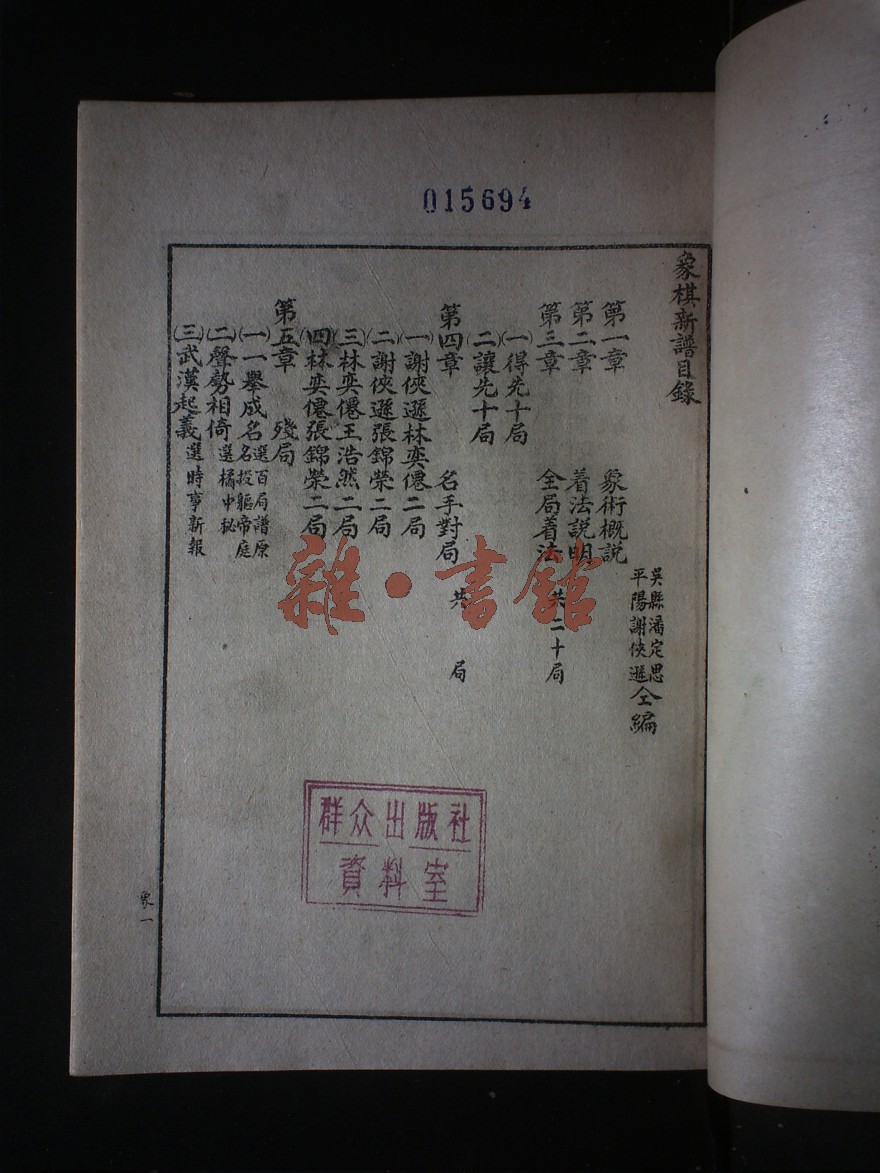 015694
象棋新譜目錄
吳縣潘定思
平陽謝俠遜仝編
第一章 象術概説
第二章 着法説明
第三章 全局着法 共二十局
㈠得先十局
㈡讓先十局
第四章 名手對局 共 局
㈠謝俠遜林奕僊二局
㈡謝俠遜張錦榮二局
㈢林奕僊王浩然二局
㈣林奕僊張錦榮二局
第五章 殘局
㈠一舉成名 選百局譜原名投軀帝庭
㈡聲勢相倚 選橘中秘
㈢武漢起義 選時事新報
象一
雜·書館
群众出版社
資料室